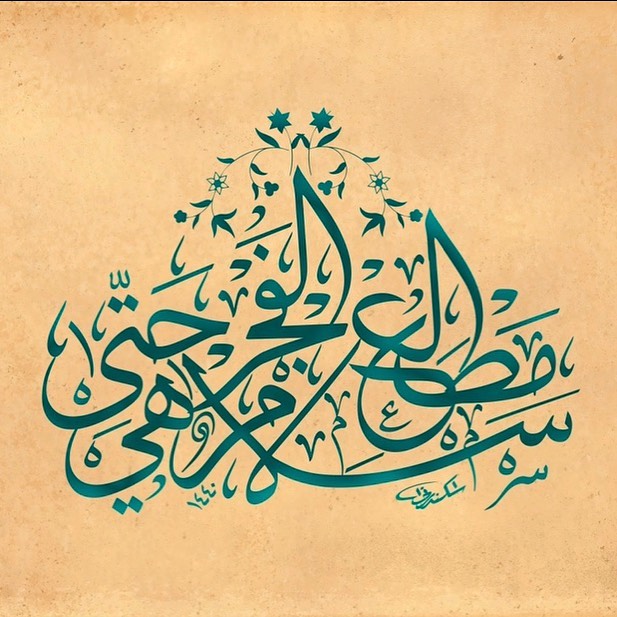 سَلَامٌ هِيَ
حَتَّى
مَطْلَعِ الْفَجْرِ
١٤٤٠